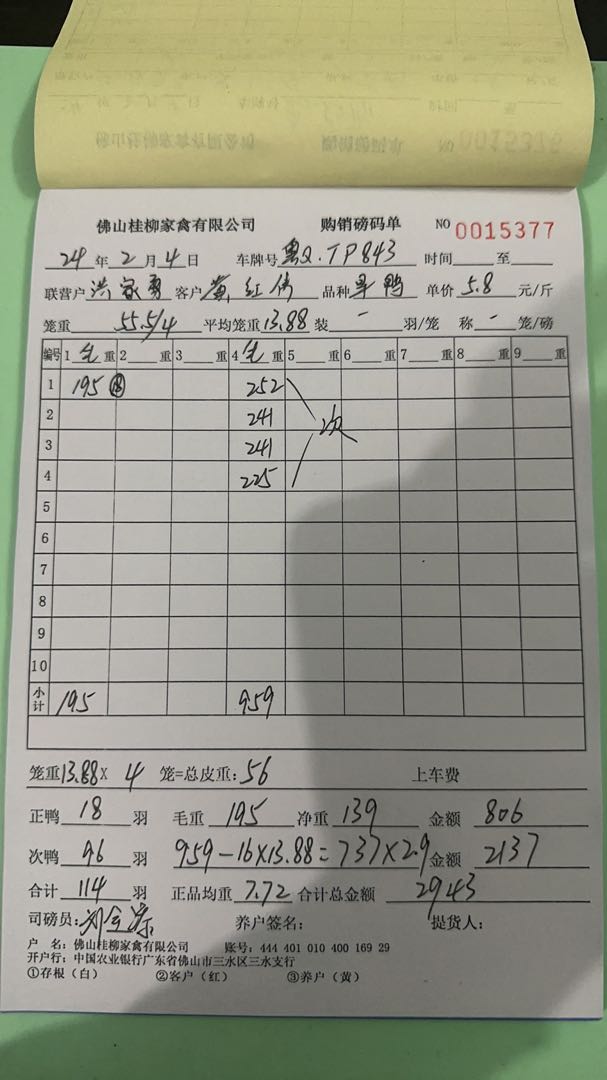 佛山桂柳家禽有限公司 购销磅码单 NO 0015377
24 年 2 月 4 日 车牌号 粤Q.TP843 时间 至
联营户 洪家勇 客户 黄红伟 品种 旱鸭 单价 5.8 元/斤
笼重 55.5/4 平均笼重 13.88 装 - 羽/笼 称 - 笼/磅
编号 1 毛 重 2 重 3 重 4 毛 重 5 重 6 重 7 重 8 重 9 重
1 195 252
2 241 次
3 241
4 225
5
6
7
8
9
10
小计 195 959
笼重 13.88 X 4 笼=总皮重: 56 上车费
正鸭 18 羽 毛重 195 净重 139 金额 806
次鸭 96 羽 959-16×13.88=737×2.9 金额 2137
合计 114 羽 正品均重 7.72 合计总金额 2943
司磅员: 养户签名: 提货人:
户 名: 佛山桂柳家禽有限公司 账号: 444 401 010 400 169 29
开户行: 中国农业银行广东省佛山市三水区三水支行
①存根（白） ②客户（红） ③养户（黄）